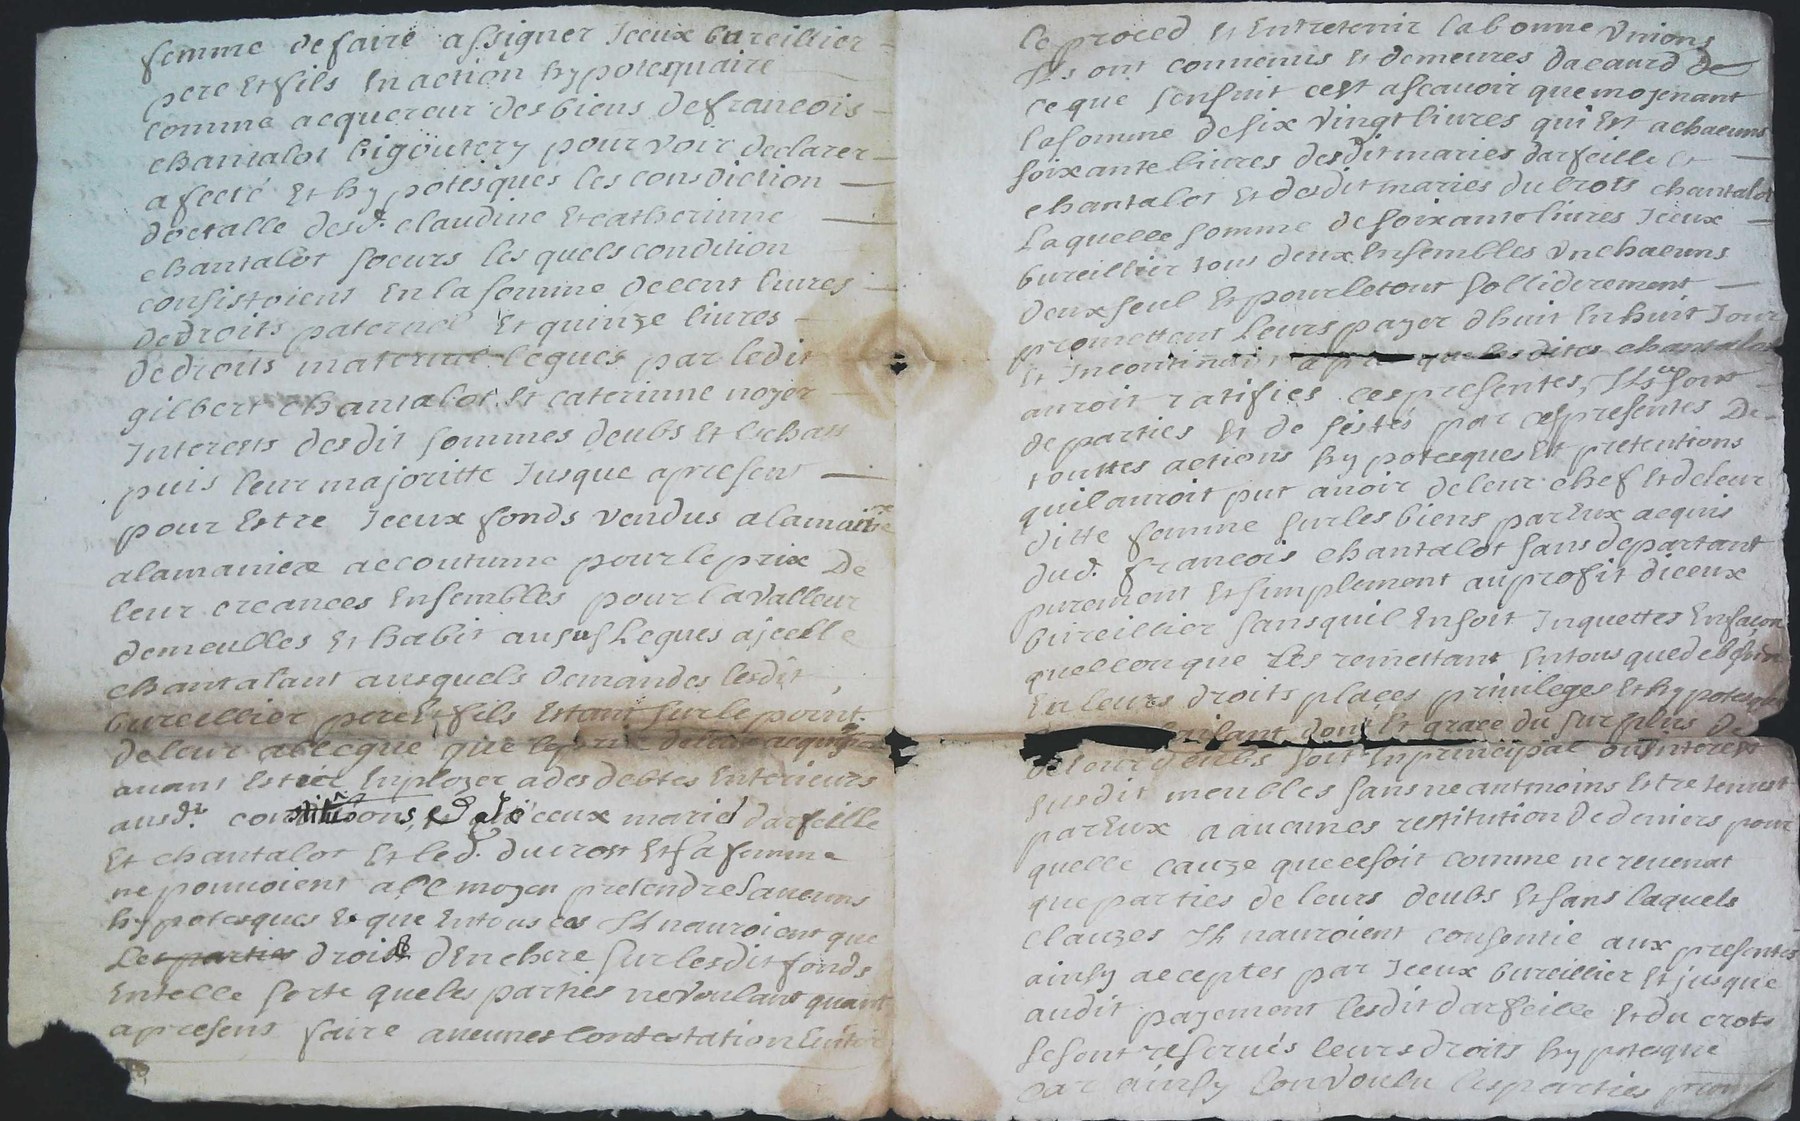 femme de faire assigner Iceux bureillier
pere Et fils En action hypotesquaire
comme acquereur des biens de francois
chantalot bigoutery pour voir declarer
afecté Et hypotesques les consdiction
doctalle desd. claudine Et catherinne
chantalot soeurs les quels condition
consistoient En la somme de cent liures
de droits paternel Et quinze liures
de droits maternel legues par ledit
gilbert chantalot et caterinne noyer
Interests desdit sommes deubs Et Eschus
puis leur majoritte Jusque apresent
pour Estre Iceux fonds vendus a la
a la maniere accoutume pour le prix De
leur creances Ensembles pour la valleur
de meulles Et habit ausus Legues a jcelle
chantalant ausquels demandes lesdit
bureillier pere Et fils Estant sur le point
de leur que
auant Estée Employer a des debtes Enterieurs
ausd. conditions, iceux marie darfeille
Et chantalot Et led. ducrost Et sa femme
ne pouuoient a ce moyen pretendres aucuns
hypotesques Et que Entous cas Ils nauroient que
Les parties droit d'Enchere sur lesdit fonds
Entelle sorte que les parties ne voulant quant
apresens faire aucunes contestation Entre
le proced Et Entretenir la bonne vnions
Ils ont conuenus Et demeures dacaurd de
ce que sensuit cest ascauoir que moyenant
la somme de six vingt liures qui Est a chacuns
soixante liures desdit maries darfeille Et
chantalot Et desdit maries du crots chantalot
Laquelle somme de soixante liures Iceux
bureillier tous deux Ensembles vn chacuns
deux seul Et pour le tout solliderement
promettent Leurs payer d'huit En huit Jour
Et Incontinant apres que lesdites chantalot
auroit ratifies ces presentes, Ils se sont
de parties Et de sistés par ces presentes De
touttes actions hypotesques Et pretentions
quil auroit put auoir de leur chef Et de leur
ditte femme sur les biens par Eux acquis
dud. francois chantalot sans departant
purement Et simplement au profit diceux
bureillier sans quil En soit Inquettes En facon
quelconque Les remettant Entous que de besoin
En leurs droits places priuileges Et hypotesques
faisant don Et grace du surplus de
de leur deubs soit En principal ou Interest
susdit meubles sans neantmoins Estre tenust
par Eux a aucunes restitution de deniers pour
quelle cauze que ce soit comme ne reuenat
que parties de leurs deubs Et sans laquels
clauzes Ils nauroient consentie aux presentes
ainsy acceptes par Iceux bureillier Et jusque
audit payement lesdit darfeille Et du crots
se sont reserués leurs droits hypotesque
car ainsy lon voulu les parties